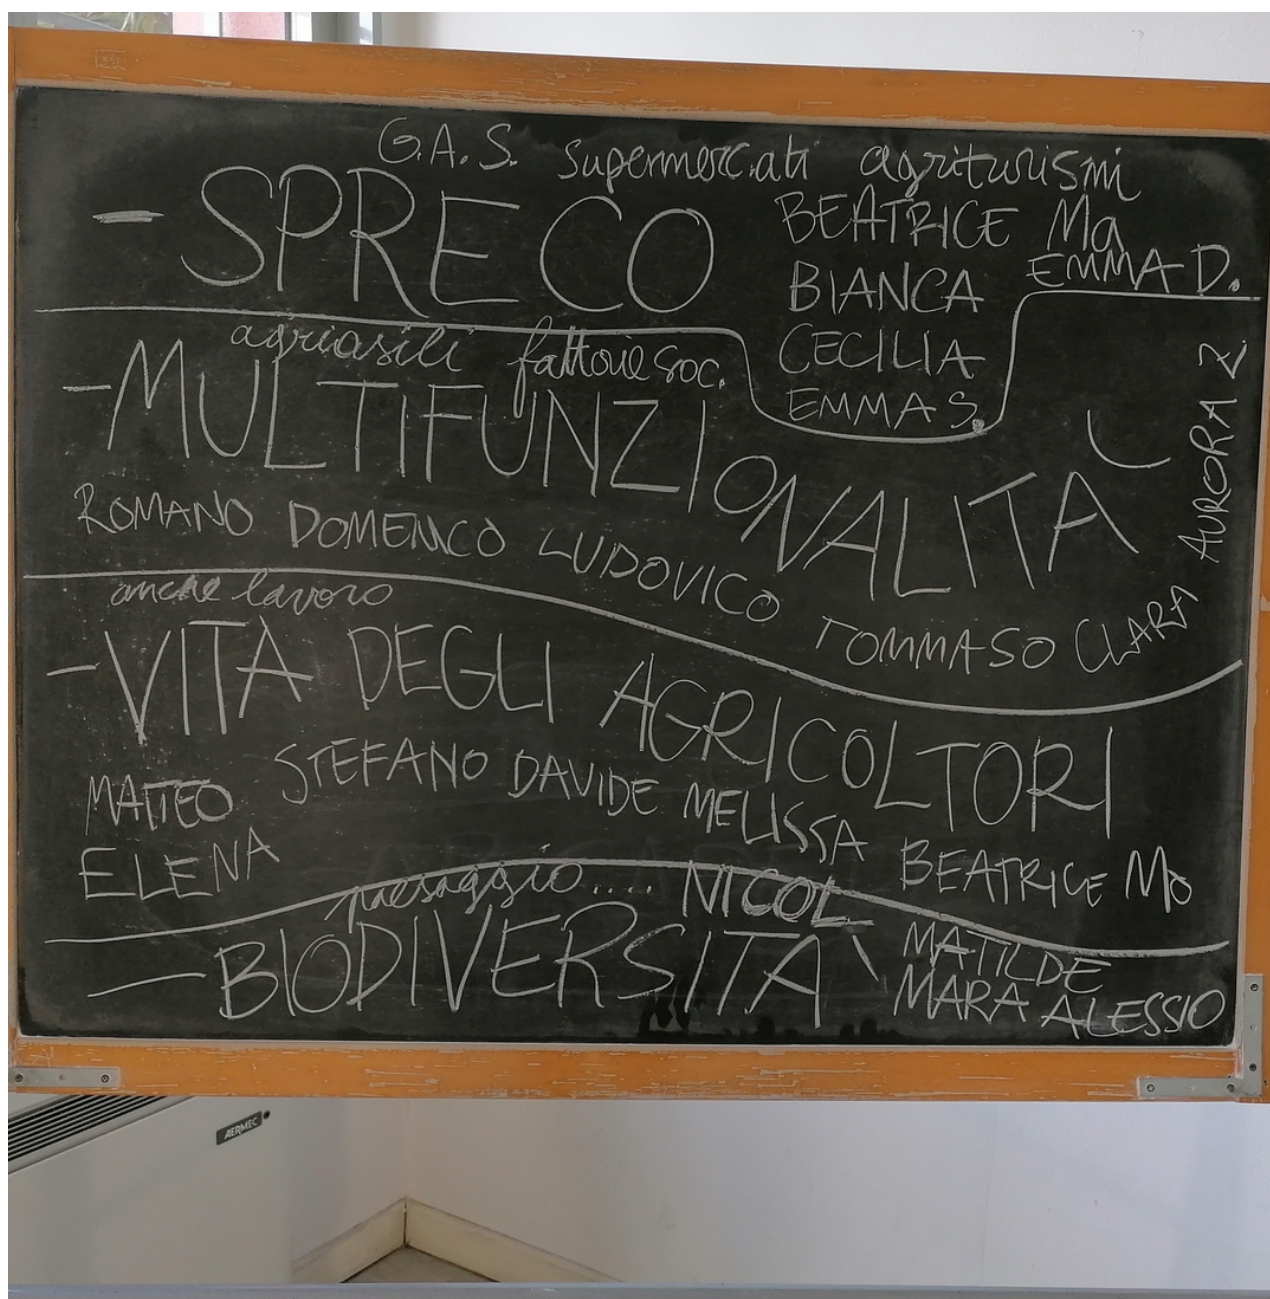 G.A.S. supermercati agriturismi
- SPRECO
BEATRICE Ma
EMMA D.
BIANCA
CECILIA
EMMA S.
agriasili fattorie soc.
- MULTIFUNZIONALITÀ
ROMANO DOMENICO LUDOVICO TOMMASO CLARA AURORA Z
anche lavoro
- VITA DEGLI AGRICOLTORI
MATTEO STEFANO DAVIDE MELISSA BEATRICE Mo
ELENA
paesaggio.... NICOL
- BIODIVERSITÀ
MATILDE
MARA ALESSIO
AERMEC